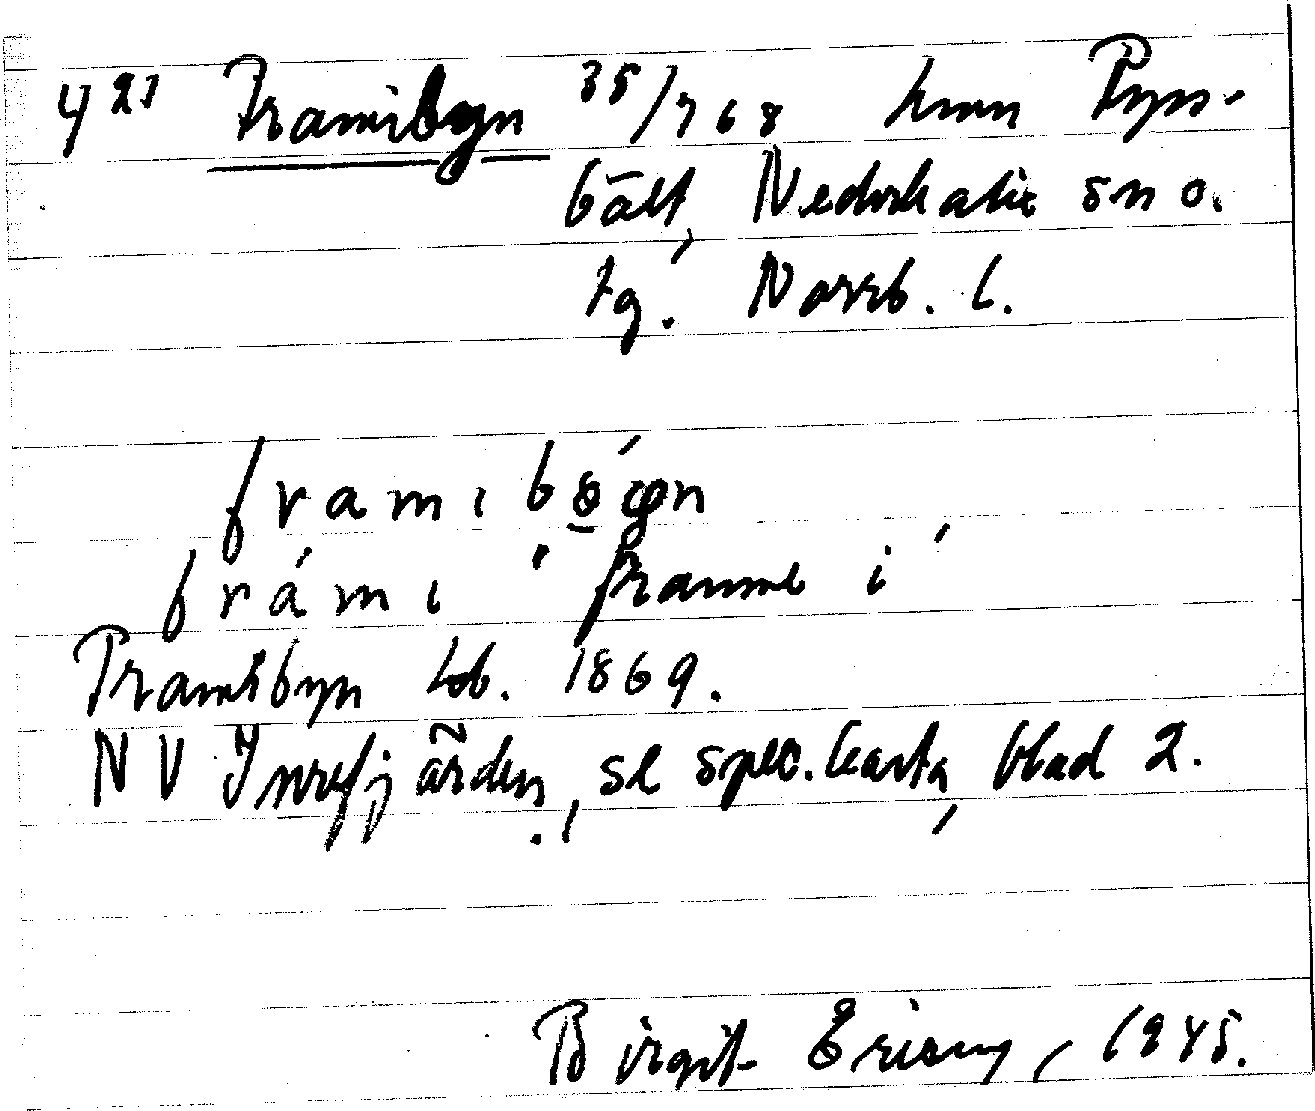 421 Framibyn 35/768 hmn Ryss-
bält, Nederkalix sn o.
tg. Norrb. l.
framıbǫ́gn
frámı 'framme i'
Framibyn Lob. 1869.
NV Inrefjärden, se spec.karta, blad 2.
Birgit Ericny, 1945.